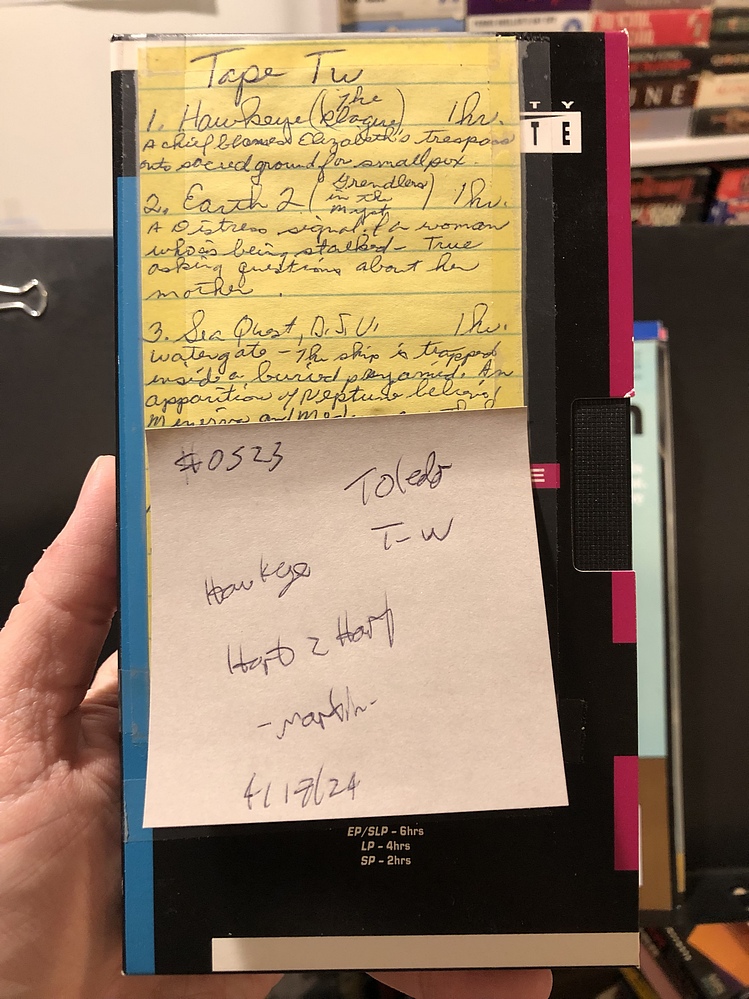 Tape Tw
1. Hawkeye (The Plague) 1hr.
A chief blames Elizabeth's trespass
onto sacred ground for smallpox.
2. Earth 2 (Grendlers in the Myst) 1hr.
A Distress signal f/a woman
who's being stalked - True
asking questions about her
mother.
3. Sea Quest, D.S.V. 1hr.
Watergate - The ship is trapped
inside a buried pyramid. An
apparition of Neptune
Minerva and
T Y
T E
E
#0523
Toledo
T-W
Hawkeye
Hart 2 Hart
-martin-
4/18/24
EP/SLP - 6hrs
LP - 4hrs
SP - 2hrs
UNE